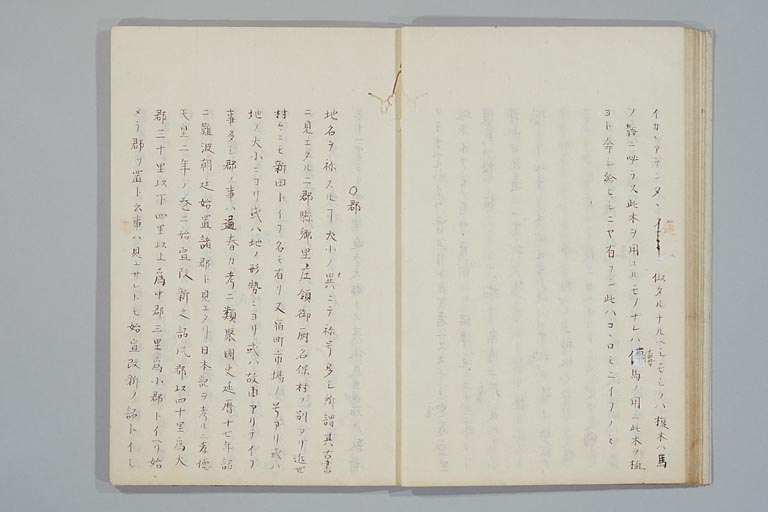 ノ 二呼ラス此木ヲ用エルモノナレハ傳馬ノ用ニ此木ヲ植
ヨト命シ給ヒシニヤ有ラン此ハコヽロミニイフノミ
〇郡
地名ヲ称スルヿ大小ノ異ニテ称号多シ所謂其古書
ニ見エタルニ郡縣郷里庄領御厨名保村ノ別アリ近世
村々ニモ新田トイフ名モ有リ又宿町市場ノ号アリ或ハ
地ノ大小ニヨリ或ハ地ノ形勢ニヨリ或ハ故由アリテイフ
事多シ郡ノ事ハ道春カ考ニ類聚國史延暦十七年詔
ニ難波朝廷始置諸郡ト見エタリ日本記ヲ考ルニ孝徳
天皇二年ノ巻ニ始宣改新之詔凡郡以四十里為大
郡三十里以下四里以上為中郡三里為小郡トイヘリ始
メテ郡ヲ置ト云事ハ見エサレトモ始宣改新ノ詔トイヒ